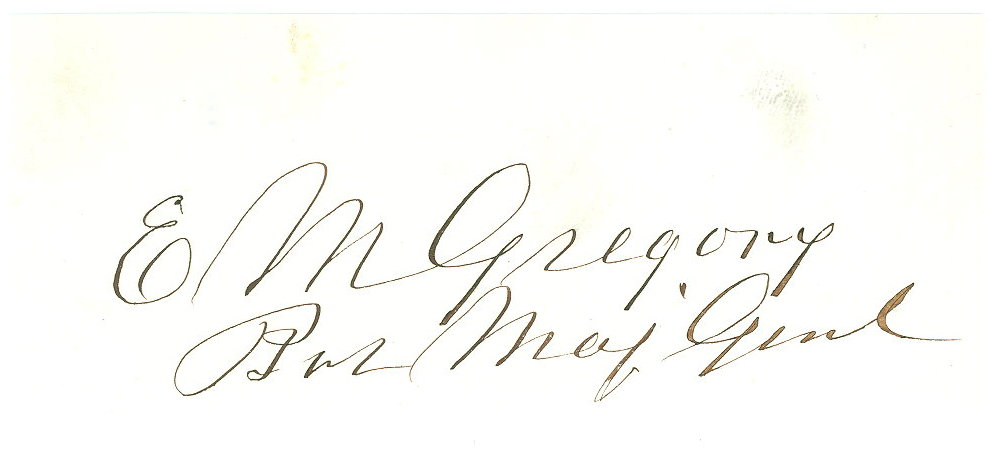 E M Gregory
Bvt Maj Genl